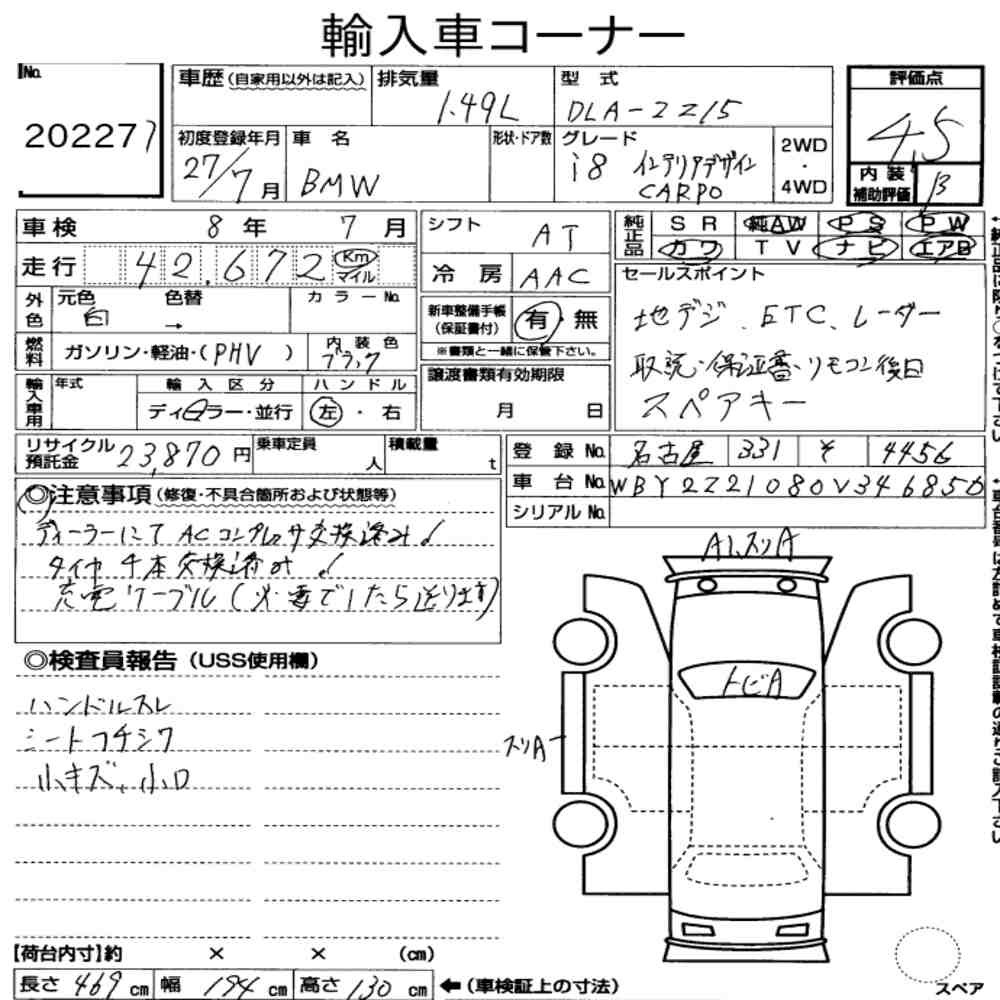 輸入車コーナー
No.
202277
車歴(自家用以外は記入)
排気量
1.49L
型 式
DLA-2Z15
評価点
4.5
初度登録年月
27/7月
車 名
BMW
形状・ドア数
グレード
i8 インテリアデザイン
CARPO
2WD
・
4WD
内 装
補助評価
B
車検 8年 7月
走行 42,672 Km
マイル
シフト AT
冷 房 AAC
純正品
SR 純AW PS PW
カワ TV ナビ エアB
外色
元色
白
色替
→
カラーNo.
燃料
ガソリン・軽油・(PHV )
内 装 色
ブラック
新車整備手帳
(保証書付)
有・無
※書類と一緒に保管下さい。
セールスポイント
地デジ、ETC、レーダー
取説・保証書・リモコン後日
スペアキー
輸入車用
年式
輸 入 区 分
ディーラー・並行
ハ ン ド ル
左・右
譲渡書類有効期限
月 日
リサイクル
預託金
23,870円
乗車定員
人
積載量
t
登 録 No. 名古屋 331 そ 4456
車 台 No. WBY2Z21080V346850
シリアル No.
◎注意事項(修復・不具合箇所および状態等)
ディーラーにて ACコンプレッサ交換済み!
タイヤ 4本交換済み!
充電ケーブル(必要でしたら送ります)
◎検査員報告(USS使用欄)
ハンドルスレ
シートフチシワ
小キズ、小凹
A1、スリA
トビA
スリA
【荷台内寸】約 × × (cm)
長さ 469 cm 幅 194 cm 高さ 130 cm ←(車検証上の寸法)
スペア